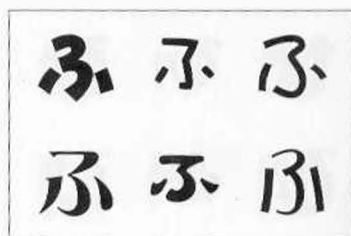 ふふふ
ふふふ